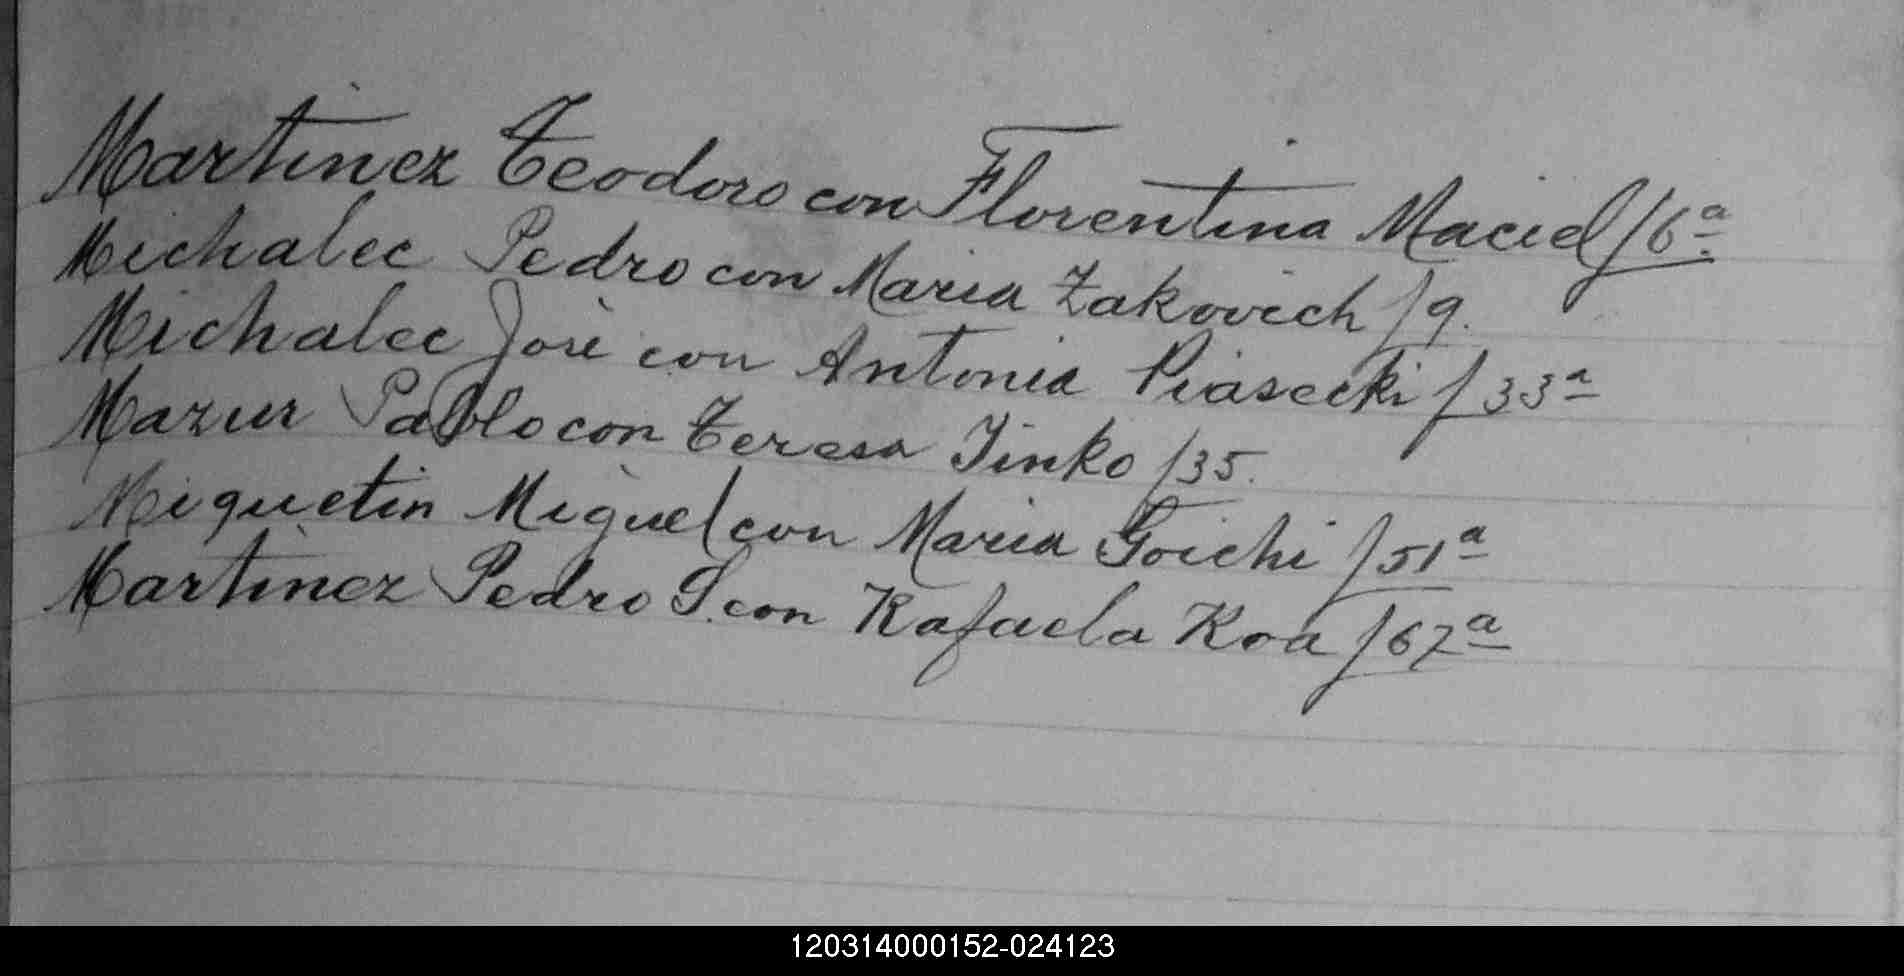 Martinez Teodoro con Florentina Maciel f 6ª
Michalec Pedro con Maria Zakovich f 9.
Michalec José con Antonia Piasecki f 33ª
Mazur Pablo con Teresa Jinko f 35.
Miquetin Miguel con Maria Goichi f 51ª
Martinez Pedro S. con Rafaela Roa f 67ª
120314000152-024123